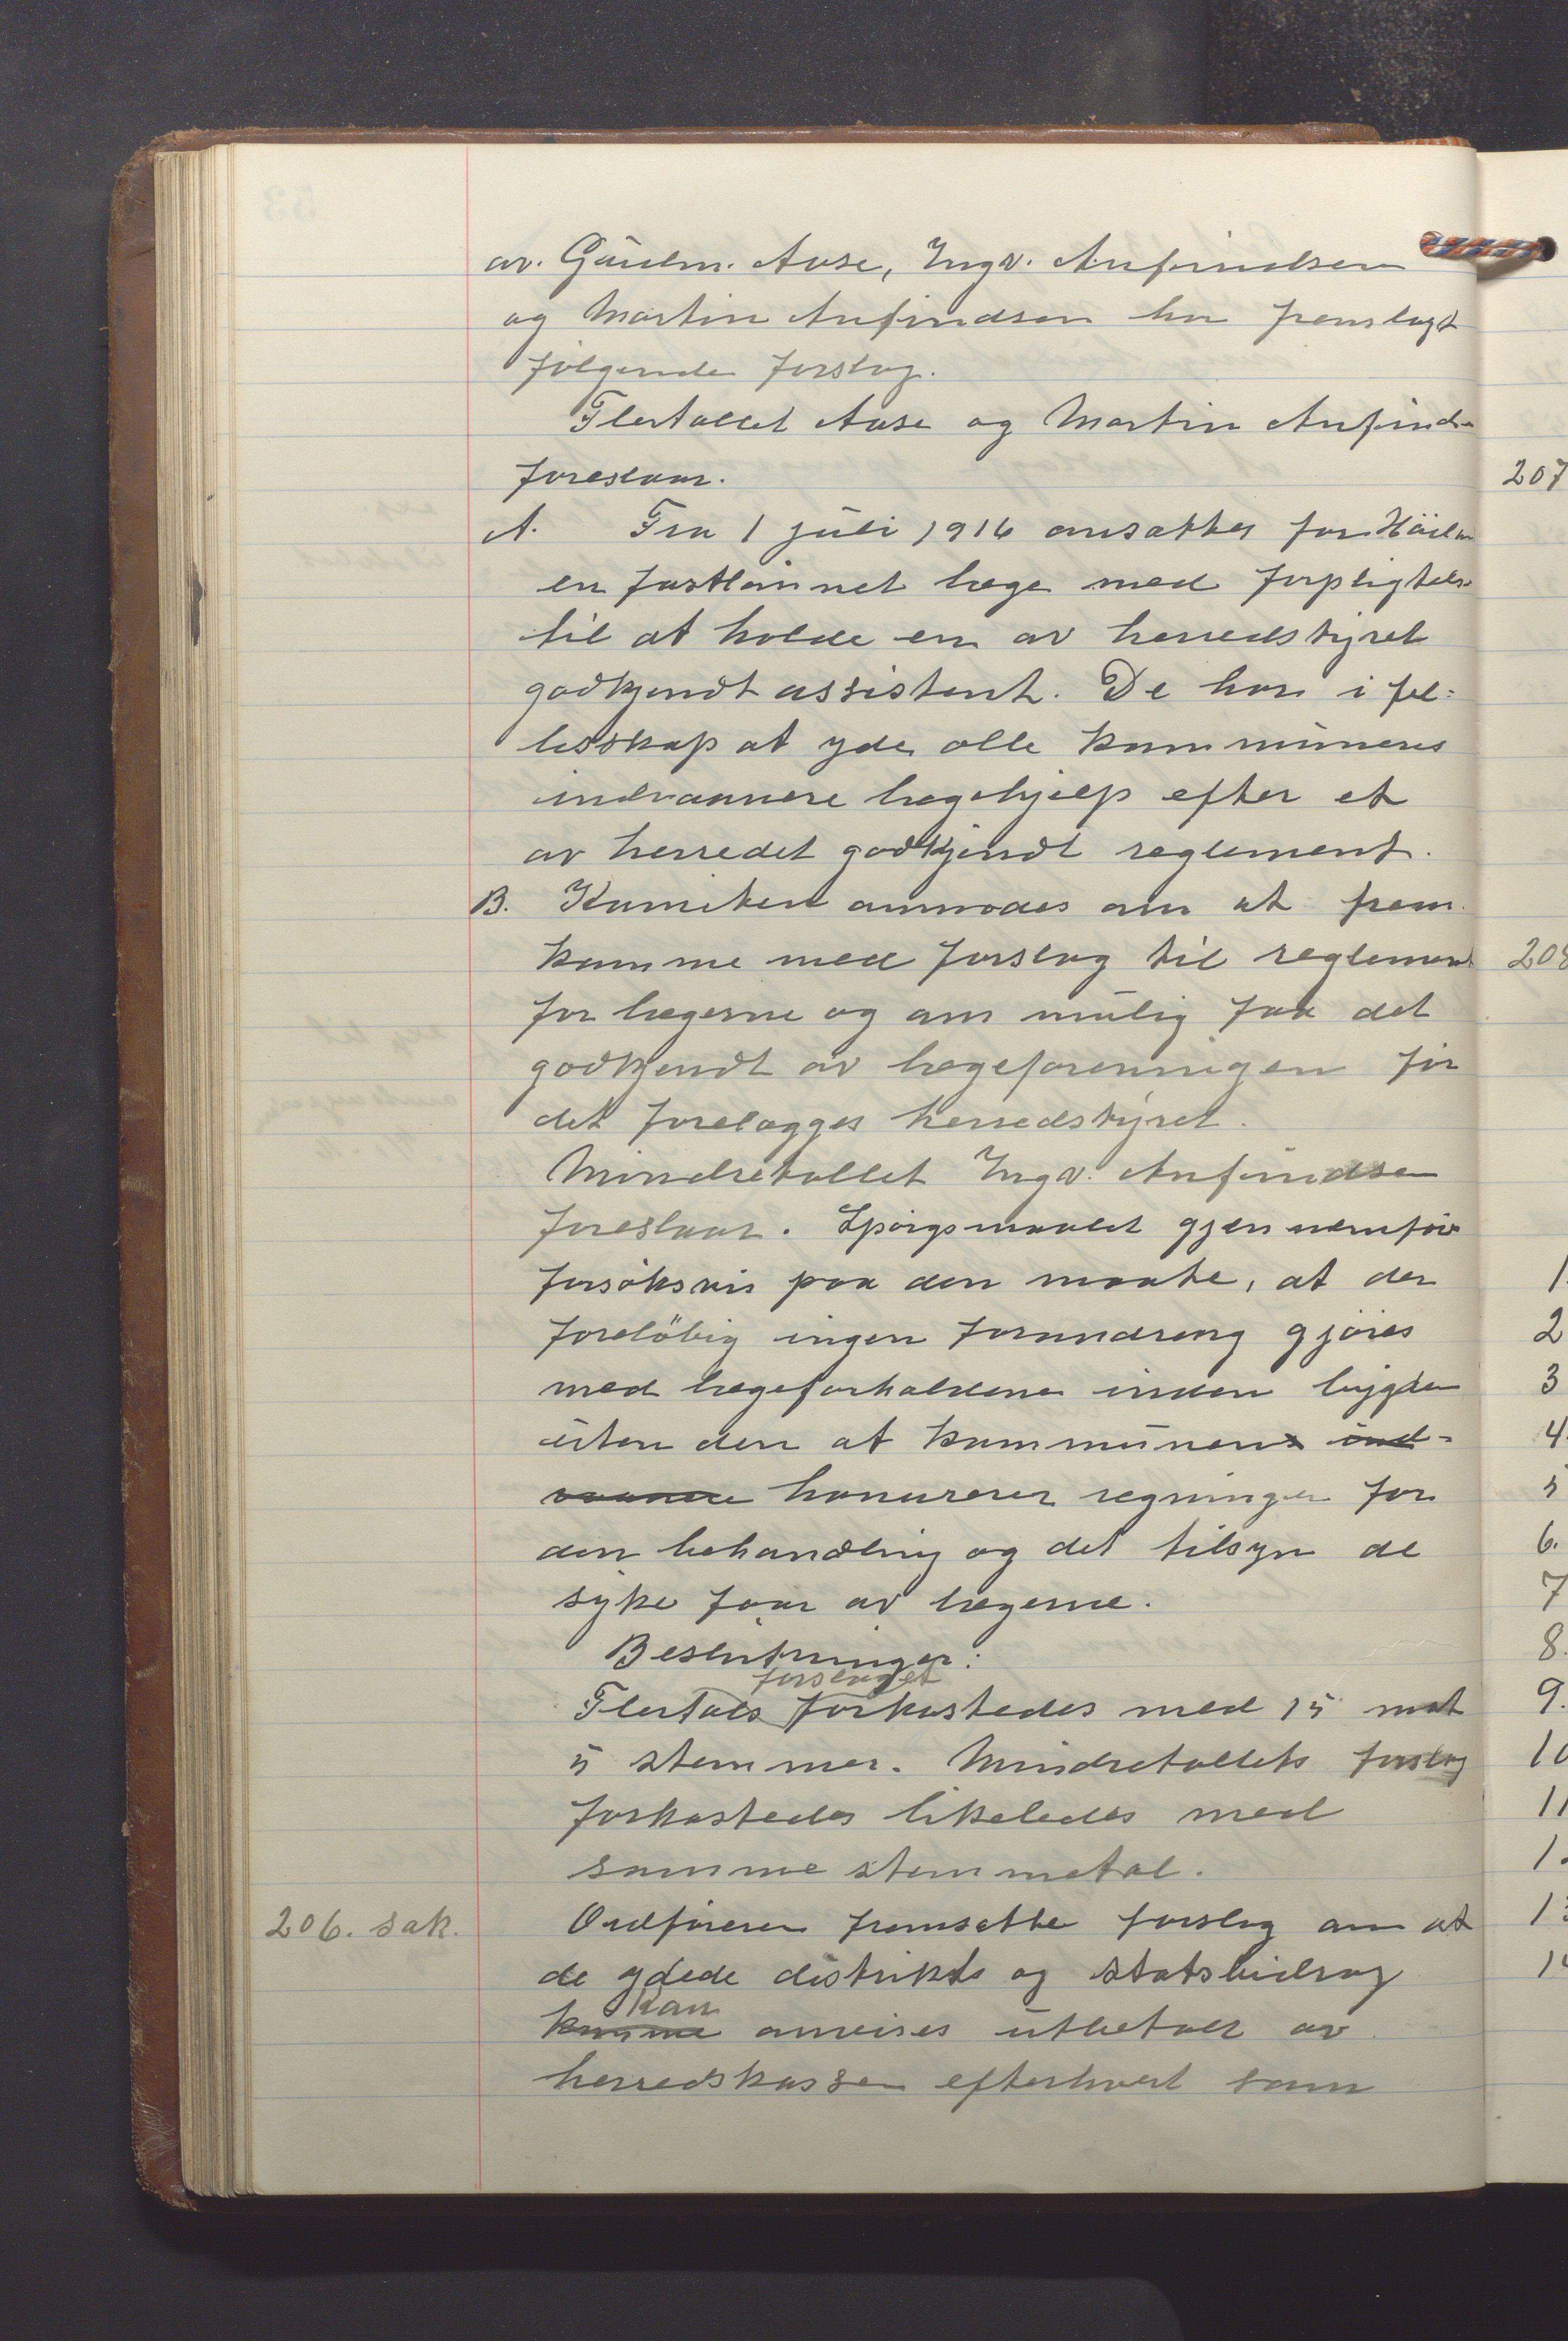 av. Gudm. Aase, Ingv. Anfindsen
og Martin Anfindsen har fremlagt
følgende forslag.
Flertallet Aase og Martin Anfinds
foreslaar.
A. Fra 1 juli 1916 ansættes for
en fastlønnet læge med forpligtelse
til at holde en av herredstyret
godkjendt assistent. De har i fæl-
lesskap at yde alle kommunens
indvaanere lægehjælp efter et
av herredet godkjendt reglement.
B. Komiteen anmodes om at frem
komme med forslag til reglement
for lægerne og om mulig faa det
godkjendt av lægeforeningen før
det forelægges herredstyret.
Mindretallet Ingv. Anfindsen
foreslaar. Spørgsmaalet gjennemføres
forsøksvis paa den maate, at der
foreløbig ingen forandring gjøres
med lægeforholdene inden bygden
uten den at kommunens ind-
vaanere honorerer regninger for
den behandling og det tilsyn de
syke faar av lægerne.
Beslutninger:
forslaget
Flertals forkastedes med 15 mot
5 stemmer. Mindretallets forslag
forkastedes likeledes med
samme stemmetal.
206. sak. Ordføreren fremsatte forslag om at
de ydede distrikts og statsbidrag
kan
komme anvises utbetalt av
herredskassen efterhvert som
207
208
1.
2
3
4.
5
6.
7
8.
9.
10
11
1
13
14